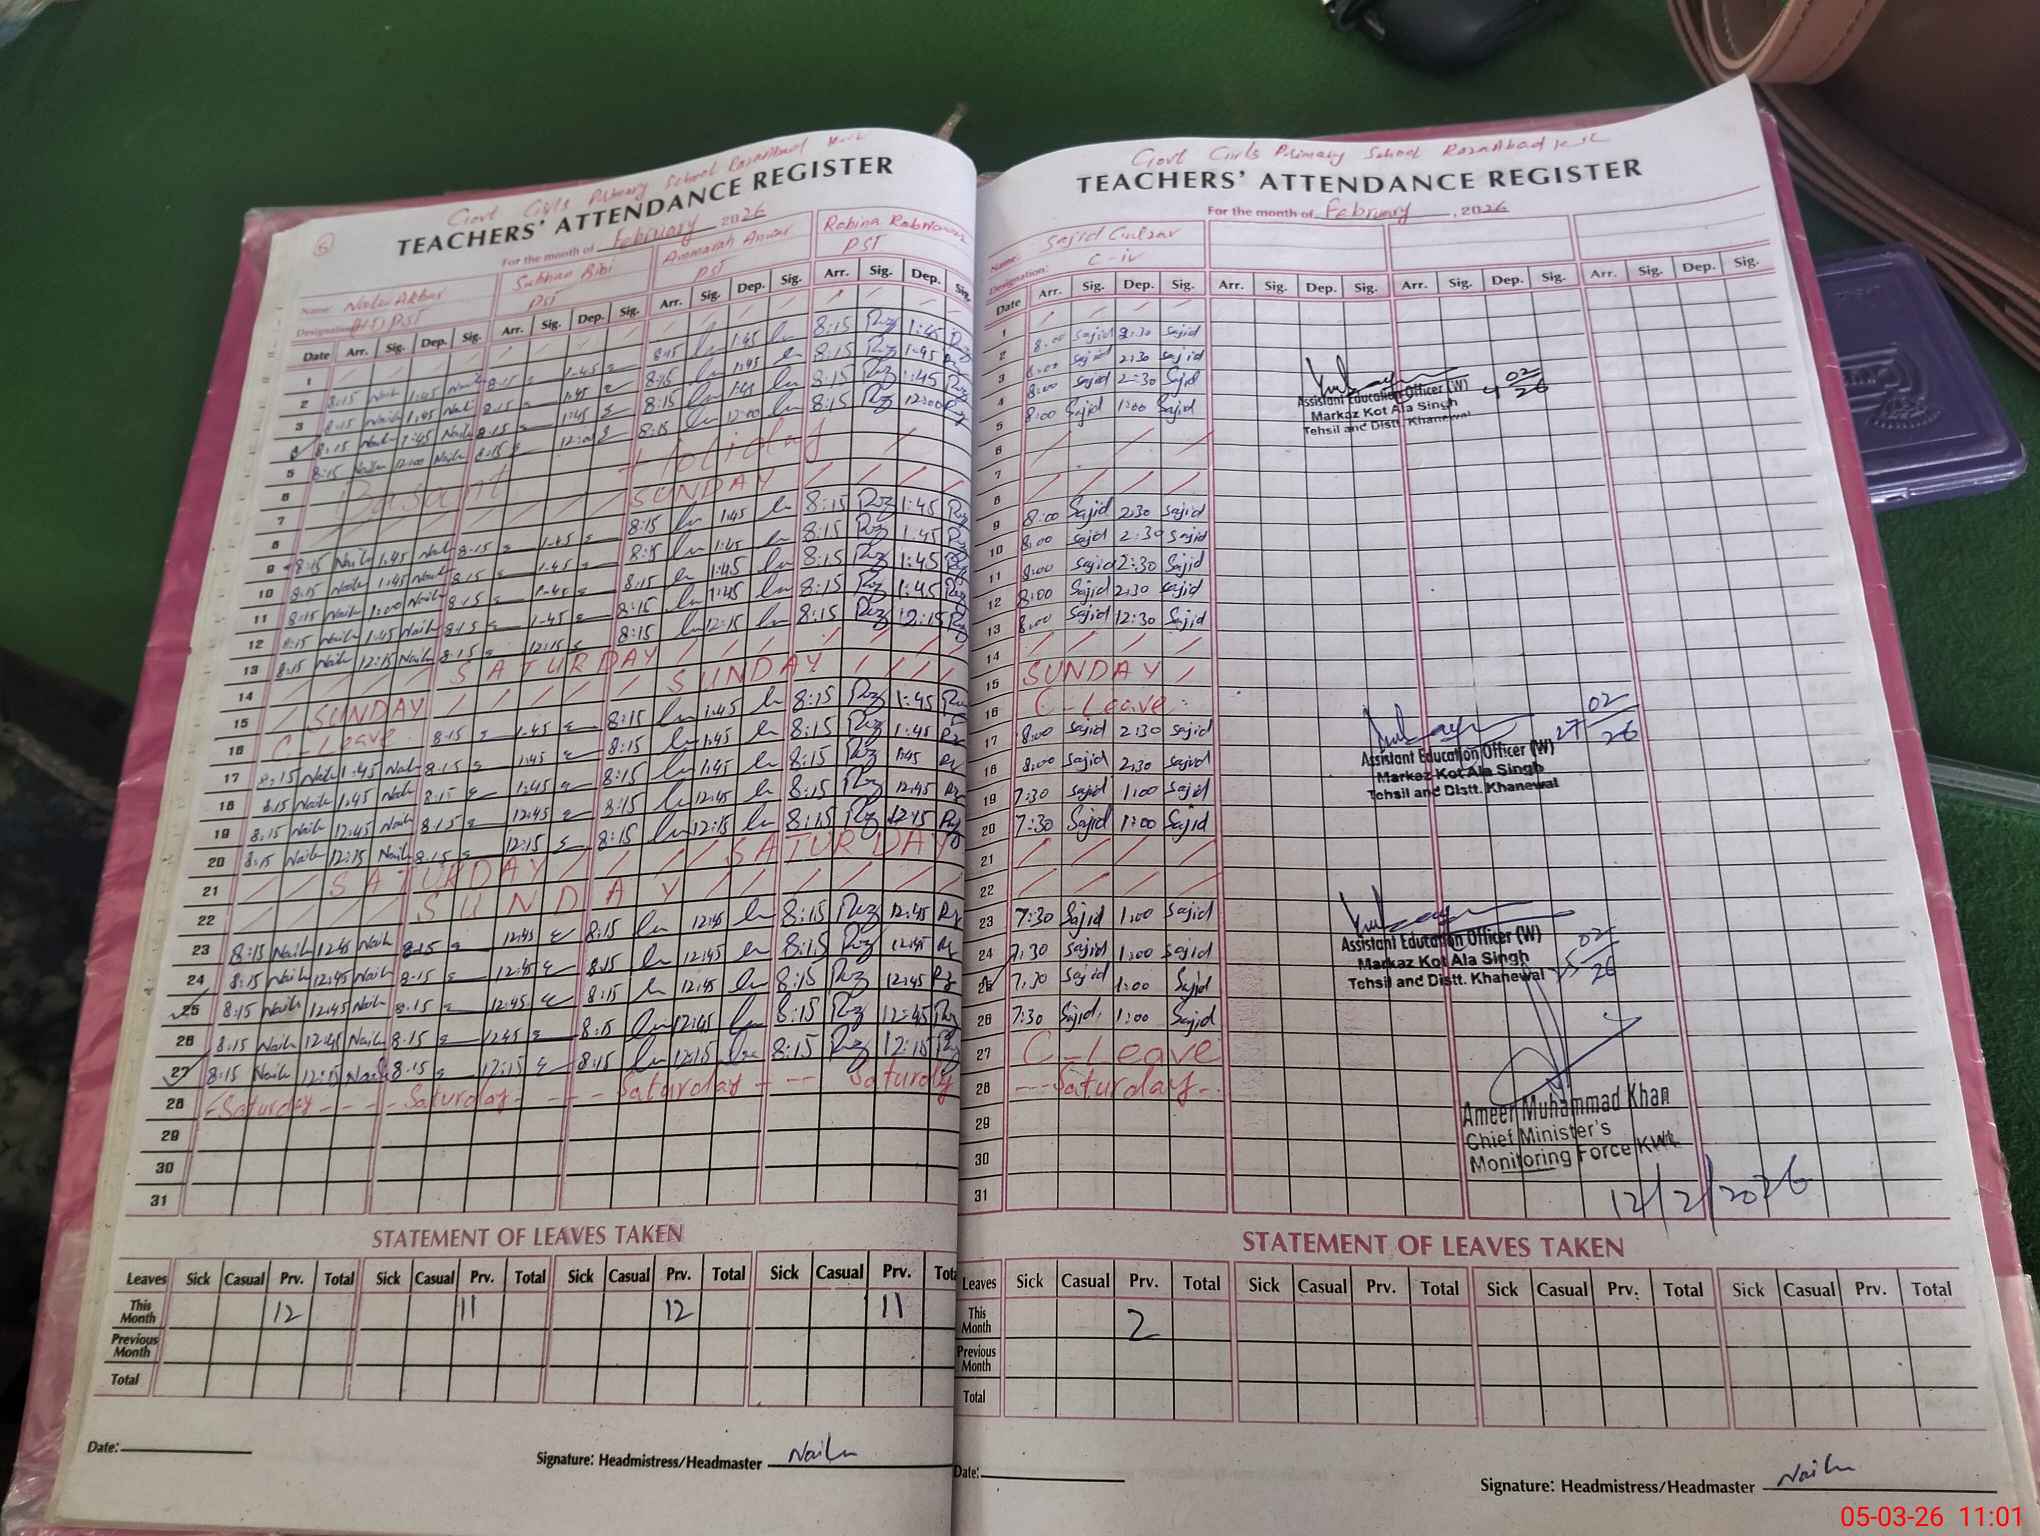 Govt Girls Primary School RazaAbad
TEACHERS' ATTENDANCE REGISTER
For the month of February 2026
6
Name: Naila Akbar Subhan Bibi Ammarah Anwar Rabina RabNawaz
Designation: PST PST PST PST
Date Arr. Sig. Dep. Sig. Arr. Sig. Dep. Sig. Arr. Sig. Dep. Sig. Arr. Sig. Dep. Sig.
1
2 8:15 Naila 1:45 Naila 8:15 1:45 8:15 1:45 8:15 Rz 1:45 Rz
3 8:15 Naila 1:45 Naila 8:15 1:45 8:15 1:45 8:15 Rz 1:45 Rz
4 8:15 Naila 1:45 Naila 8:15 1:45 8:15 1:45 8:15 Rz 1:45 Rz
5 8:15 Naila 12:00 Naila 8:15 12:00 8:15 12:00 8:15 Rz 12:00 Rz
6 Basant Holiday
7
8 SUNDAY
9 8:15 Naila 1:45 Naila 8:15 1:45 8:15 1:45 8:15 Rz 1:45 Rz
10 8:15 Naila 1:45 Naila 8:15 1:45 8:15 1:45 8:15 Rz 1:45 Rz
11 8:15 Naila 1:00 Naila 8:15 1:45 8:15 1:45 8:15 Rz 1:45 Rz
12 8:15 Naila 1:45 Naila 8:15 1:45 8:15 1:45 8:15 Rz 1:45 Rz
13 8:15 Naila 12:15 Naila 8:15 12:15 8:15 12:15 8:15 Rz 12:15 Rz
14 SATURDAY
15 SUNDAY SUNDAY
16 C-Leave 8:15 1:45 8:15 1:45 8:15 Rz 1:45 Rz
17 8:15 Naila 1:45 Naila 8:15 1:45 8:15 1:45 8:15 Rz 1:45 Rz
18 8:15 Naila 1:45 Naila 8:15 1:45 8:15 1:45 8:15 Rz 1:45 Rz
19 8:15 Naila 12:45 Naila 8:15 12:45 8:15 12:45 8:15 Rz 12:45 Rz
20 8:15 Naila 12:15 Naila 8:15 12:15 8:15 12:15 8:15 Rz 12:15 Rz
21 SATURDAY SATURDAY
22 SUNDAY
23 8:15 Naila 12:45 Naila 8:15 12:45 8:15 12:45 8:15 Rz 12:45 Rz
24 8:15 Naila 12:45 Naila 8:15 12:45 8:15 12:45 8:15 Rz 12:45 Rz
25 8:15 Naila 12:45 Naila 8:15 12:45 8:15 12:45 8:15 Rz 12:45 Rz
26 8:15 Naila 12:45 Naila 8:15 12:45 8:15 12:45 8:15 Rz 12:45 Rz
27 8:15 Naila 12:15 Naila 8:15 12:15 8:15 12:15 8:15 Rz 12:15 Rz
28 Saturday Saturday Saturday Saturday
29
30
31
STATEMENT OF LEAVES TAKEN
Leaves Sick Casual Prv. Total Sick Casual Prv. Total Sick Casual Prv. Total Sick Casual Prv.
This Month 12 11 12 11
Previous Month
Total
Date:
Signature: Headmistress/Headmaster Naila
Govt Girls Primary School RazaAbad
TEACHERS' ATTENDANCE REGISTER
For the month of February, 2026
Name: Sajid Gulzar
Designation: C-iv
Date Arr. Sig. Dep. Sig. Arr. Sig. Dep. Sig. Arr. Sig. Dep. Sig. Arr. Sig. Dep. Sig.
1
2 8:00 Sajid 2:30 Sajid
3 8:00 Sajid 2:30 Sajid
4 8:00 Sajid 2:30 Sajid
5 8:00 Sajid 1:00 Sajid
Assistant Education Officer (W)
Markaz Kot Ala Singh
Tehsil and Distt. Khanewal
4 02/26
6
7
8
9 8:00 Sajid 2:30 Sajid
10 8:00 Sajid 2:30 Sajid
11 8:00 Sajid 2:30 Sajid
12 8:00 Sajid 2:30 Sajid
13 8:00 Sajid 12:30 Sajid
14
15 SUNDAY
16 C-Leave
17 8:00 Sajid 2:30 Sajid
18 8:00 Sajid 2:30 Sajid
19 7:30 Sajid 1:00 Sajid
20 7:30 Sajid 1:00 Sajid
Assistant Education Officer (W)
Markaz Kot Ala Singh
Tehsil and Distt. Khanewal
27 02/26
21
22
23 7:30 Sajid 1:00 Sajid
24 7:30 Sajid 1:00 Sajid
25 7:30 Sajid 1:00 Sajid
26 7:30 Sajid 1:00 Sajid
Assistant Education Officer (W)
Markaz Kot Ala Singh
Tehsil and Distt. Khanewal
25 02/26
27 C-Leave
28 Saturday
29
30
31
Ameer Muhammad Khan
Chief Minister's
Monitoring Force KWL
12/2/2026
STATEMENT OF LEAVES TAKEN
Leaves Sick Casual Prv. Total Sick Casual Prv. Total Sick Casual Prv. Total Sick Casual Prv. Total
This Month 2
Previous Month
Total
Date:
Signature: Headmistress/Headmaster Naila
05-03-26 11:01